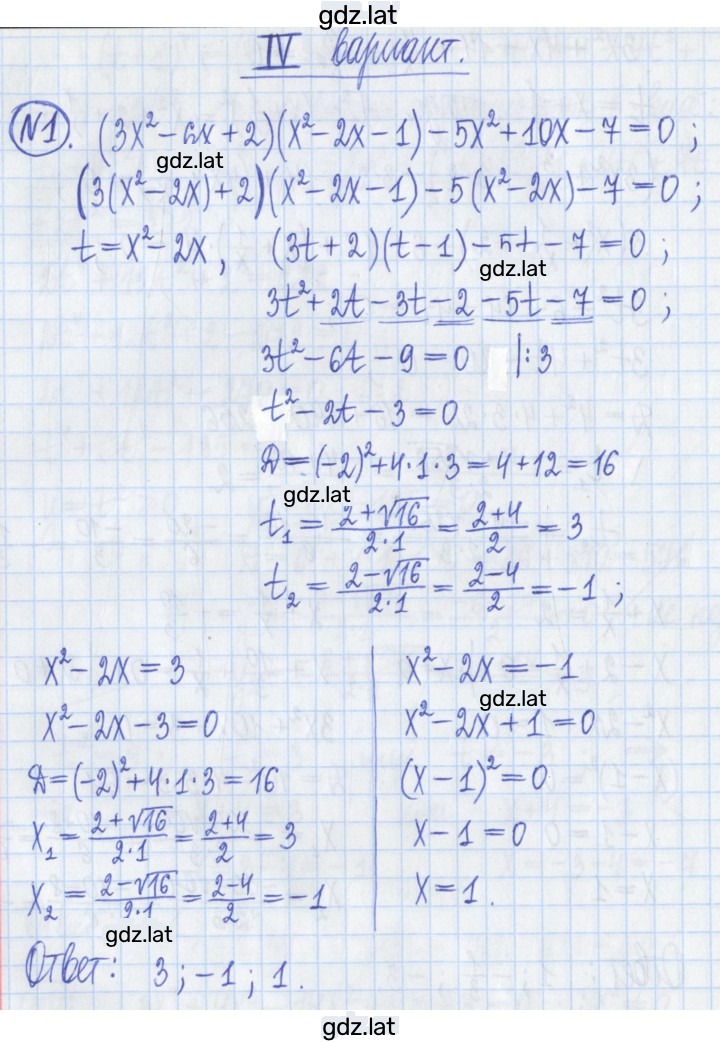 gdz.lat
IV вариант.
№1. (3x² – 6x + 2)(x² – 2x – 1) – 5x² + 10x – 7 = 0 ;
gdz.lat
(3(x² – 2x) + 2)(x² – 2x – 1) – 5(x² – 2x) – 7 = 0 ;
t = x² – 2x , (3t + 2)(t – 1) – 5t – 7 = 0 ;
gdz.lat
3t² + 2t – 3t – 2 – 5t – 7 = 0 ;
3t² – 6t – 9 = 0 |: 3
t² – 2t – 3 = 0
Д = (–2)² + 4·1·3 = 4 + 12 = 16
gdz.lat
t₁ = (2 + √16)/(2·1) = (2+4)/2 = 3
t₂ = (2 – √16)/(2·1) = (2–4)/2 = –1 ;
x² – 2x = 3
x² – 2x – 3 = 0
Д = (–2)² + 4·1·3 = 16
x₁ = (2 + √16)/(2·1) = (2+4)/2 = 3
x₂ = (2 – √16)/(2·1) = (2–4)/2 = –1
gdz.lat
x² – 2x = –1
gdz.lat
x² – 2x + 1 = 0
(x – 1)² = 0
x – 1 = 0
x = 1 .
Ответ: 3 ; –1 ; 1 .
gdz.lat